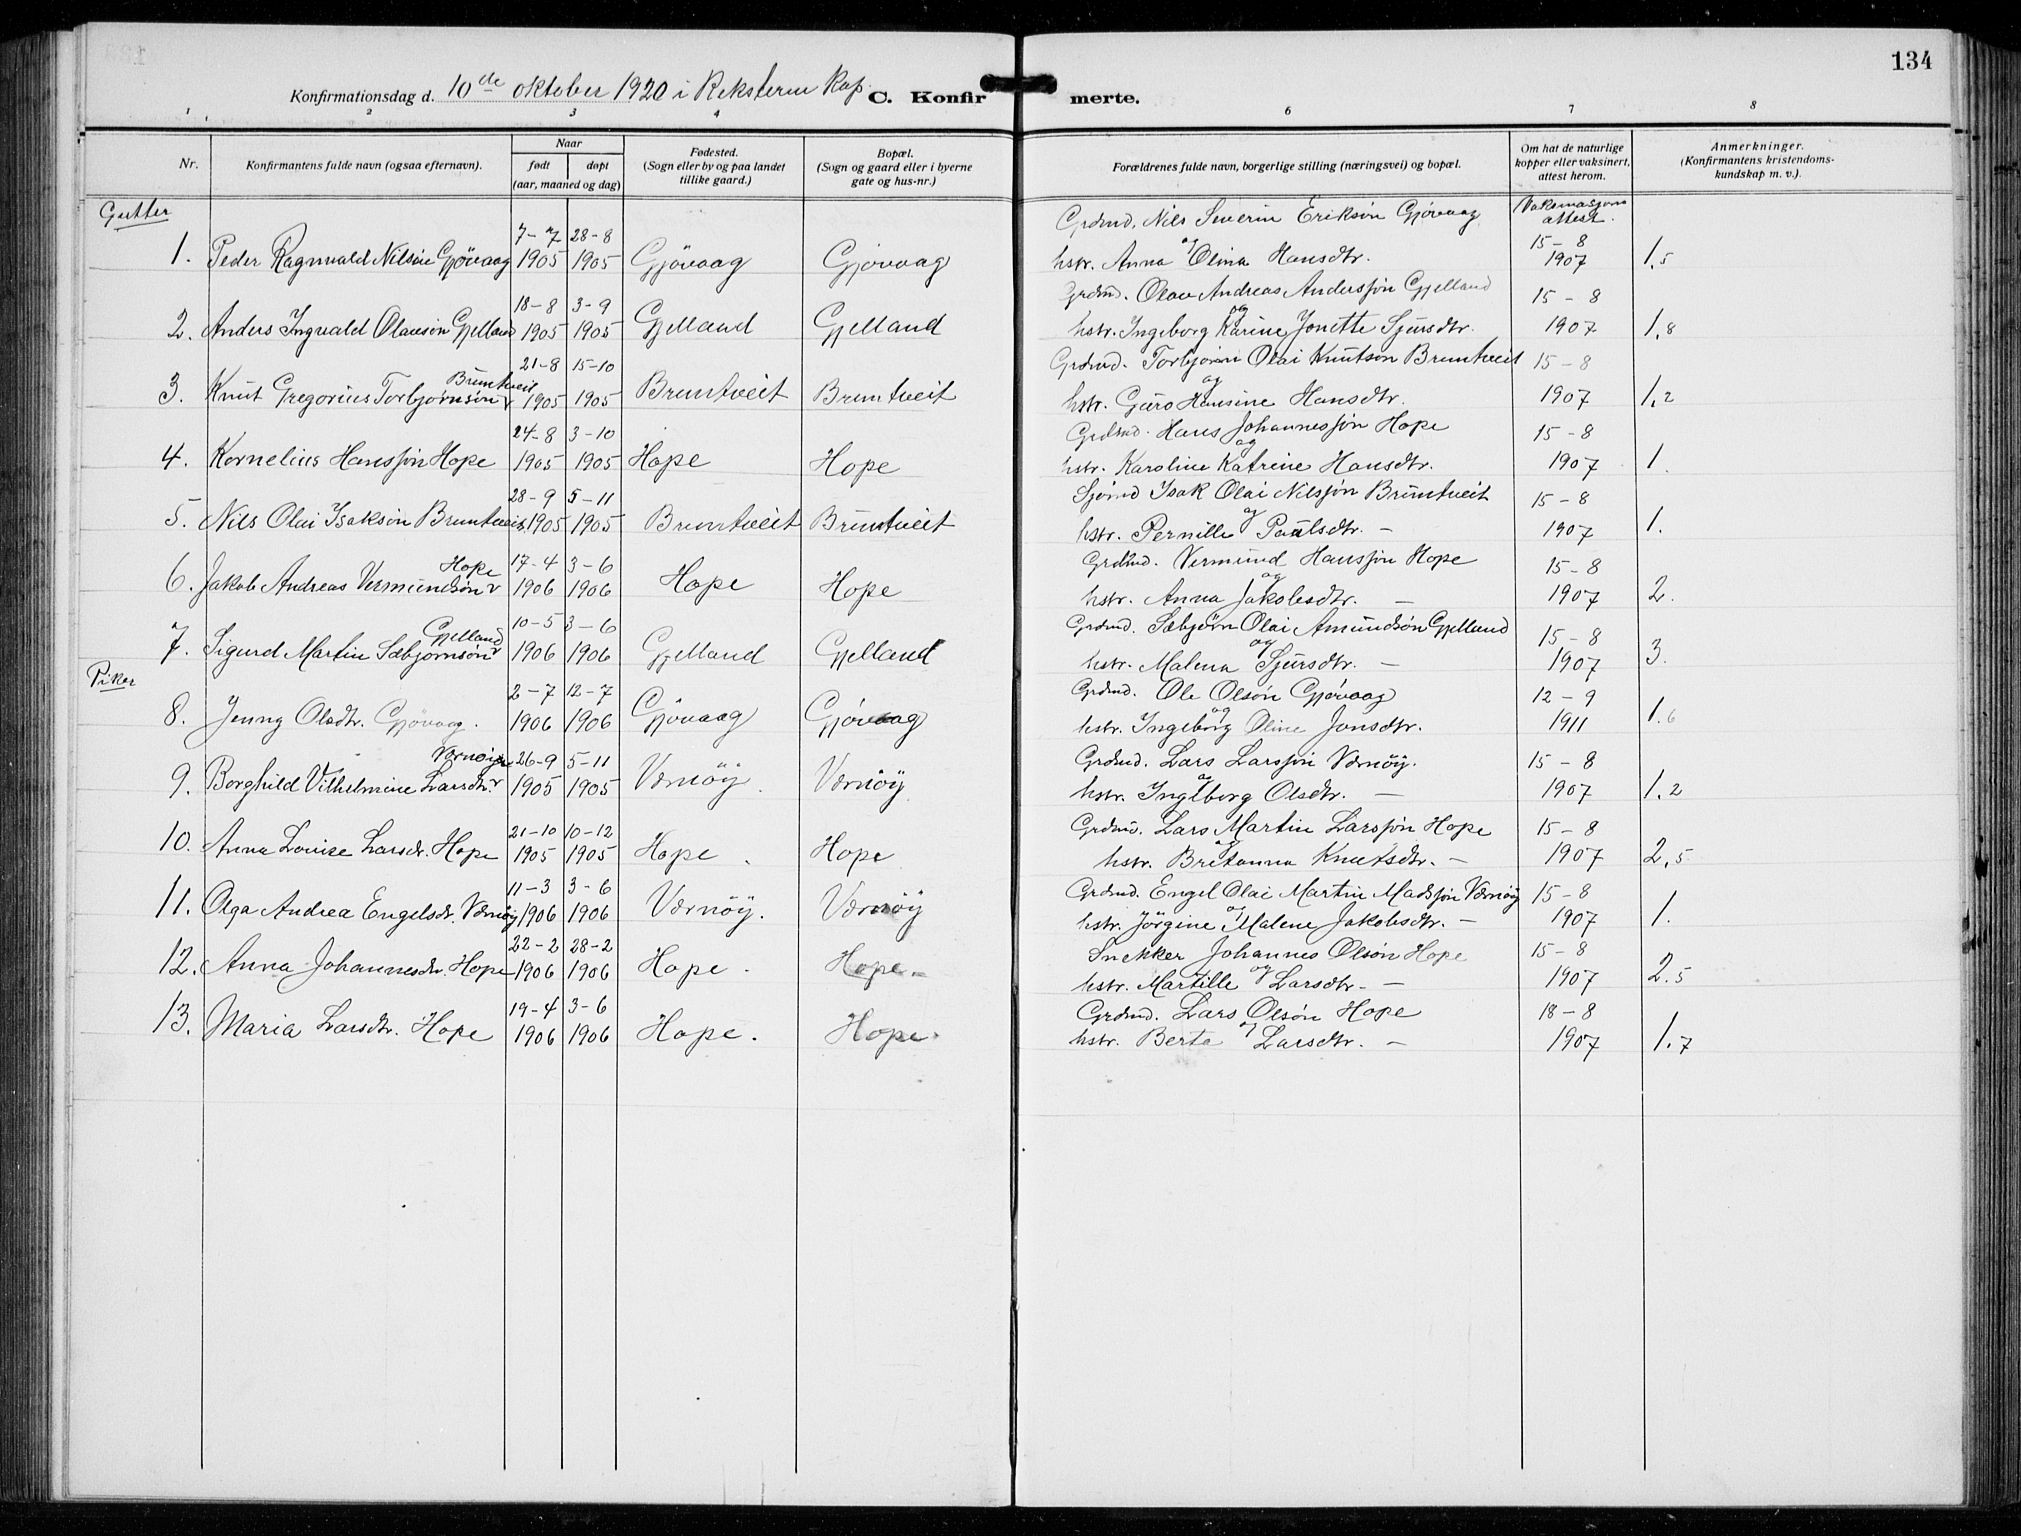 134
Konfirmationsdag d. 10de oktober 1920 i Reksteren Kap. C. Konfirmerte.
1 2 3 4 6 7 8
Nr. Konfirmantens fulde navn (ogsaa efternavn). Naar født døpt (aar, maaned og dag) Fødested. (Sogn eller by og paa landet tillike gaard.) Bopæl. (Sogn og gaard eller i byerne gate og hus-nr.) Forældrenes fulde navn, borgerlige stilling (næringsvei) og bopæl. Om hat de naturlige kopper eller vaksinert, attest herom. Anmerkninger. (Konfirmantens kristendoms-kundskap m. v.).
Gutter
Vaksinasjons attest.
1. Peder Ragnvald Nilsön Gjövaag 7-7 1905 28-8 1905 Gjövaag Gjövaag Grdmd. Nils Severin Eriksön Gjövaag og hstr. Anna Olina Hansdtr. 15-8 1907 1,5
2. Anders Ingvald Olausön Gjelland 18-8 1905 3-9 1905 Gjelland Gjelland Grdmd. Olav Andreas Andersjön Gjelland og hstr. Ingeborg Karine Jonette Sjursdtr. 15-8 1907 1,8
3. Knut Gregorius Torbjørnsön Bruntveit 21-8 1905 15-10 1905 Bruntveit Bruntveit Grdmd. Torbjörn Olai Knutsön Bruntveit og hstr. Guro Hansine Hansdtr. 15-8 1907 1,2
4. Kornelius Hansjön Hope 24-8 1905 3-10 1905 Hope Hope Grdmd. Hans Johannesjön Hope og hstr. Karoline Katrine Hansdtr. 15-8 1907 1.
5. Nils Olai Isaksön Bruntveit 28-9 1905 5-11 1905 Bruntveit Bruntveit Sjömd Isak Olai Nilsjön Bruntveit og hstr. Pernille Paulsdtr. - 15-8 1907 1.
6. Jakob Andreas Vermundsön Hope 17-4 1906 3-6 1906 Hope Hope Grdmd. Vermund Hansjön Hope og hstr. Anna Jakobsdtr. - 15-8 1907 2.
7. Sigurd Martin Sæbjörnsön Gjelland 10-5 1906 3-6 1906 Gjelland Gjelland Grdmd. Sæbjørn Olai Amundsön Gjelland og hstr. Malena Sjursdtr. - 15-8 1907 3.
Piker
8. Jenny Olsdtr. Gjövaag. 2-7 1906 12-7 1906 Gjövaag Gjövaag Grdmd. Ole Olsön Gjövaag og hstr. Ingeborg Oline Jonsdtr. 12-9 1911 1.6
9. Borghild Vilhelmine Larsdtr. Værnöy 26-9 1905 5-11 1905 Værnöy. Værnöy Grdmd. Lars Larsjön Værnöy. og hstr. Ingeborg Olsdtr. - 15-8 1907 1,2
10. Anna Lovise Larsdr. Hope 21-10 1905 10-12 1905 Hope. Hope Grdmd. Lars Martin Larsjön Hope og hstr. Britanna Knutsdtr. - 15-8 1907 2,5
11. Olga Andrea Engelsdr. Værnöy 11-3 1906 3-6 1906 Værnöy. Værnöy Grdmd. Engel Olai Martin Madsjön Værnöy og hstr. Jörgine Malene Jakobsdtr. - 15-8 1907 1.
12. Anna Johannesdr. Hope 22-2 1906 28-2 1906 Hope. Hope. Snekker Johannes Olsön Hope og hstr. Martille Larsdtr. - 15-8 1907 2.5
13. Maria Larsdtr. Hope 19-4 1906 3-6 1906 Hope. Hope. Grdmd. Lars Olsön Hope og hstr. Berta Larsdtr. - 18-8 1907 1.7